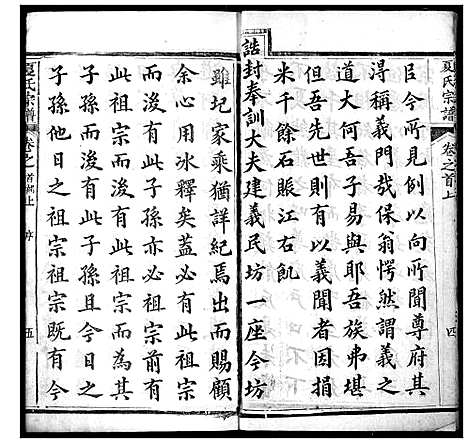 夏氏宗譜
卷之首上
四
臣今所見例以向所聞尊府其
得稱義門哉保翁愕然謂義之
道大何吾子易與耶吾族弗堪
但吾先世則有以義聞者因捐
米千餘石賑江右飢
誥封奉訓大夫建義民坊一座今坊
雖圮家乘猶詳紀焉出而賜顧
余心用冰釋矣蓋必有祖宗
而後有此子孫亦必有祖宗前有
此祖宗而後有此子孫且今日之
子孫他日之祖宗祖宗既有今
夏氏宗譜
卷之首上
序
五